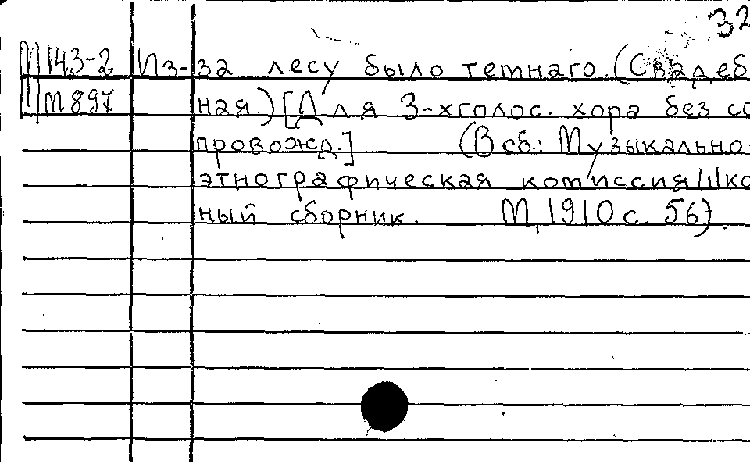 32
143-2 Из-за лесу было темнаго. (Свадеб
М897 ная) [Для 3-хголос. хора без со
провожд.] (В сб.: Музыкально-
этнографическая комиссия Шко
ный сборник. М, 1910 с. 56).